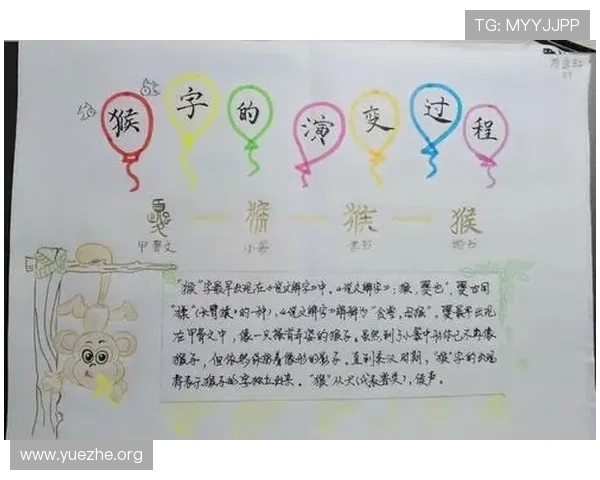 TG: MYYJJPP
猴字的演变过程
夒 — 猴 — 猴 — 猴
甲骨文 小篆 隶书 楷书
"猴"字最早出现在《说文解字》中。《说文解字》:猴,夒也"。夒古同
"猱"(长臂猿的一种),《说文解字》解释为"贪兽,母猴"。夒最早出现
在甲骨文中,像一只搔首弄姿的猴子。虽然到了小篆中形体已不再像
猴子,但依然保持着像形的影子。直到秦汉时期,"猴"字的出现
将表示猴子的字独立出来。"猴"从犬(代表兽类),侯声。
www.yuezhe.org